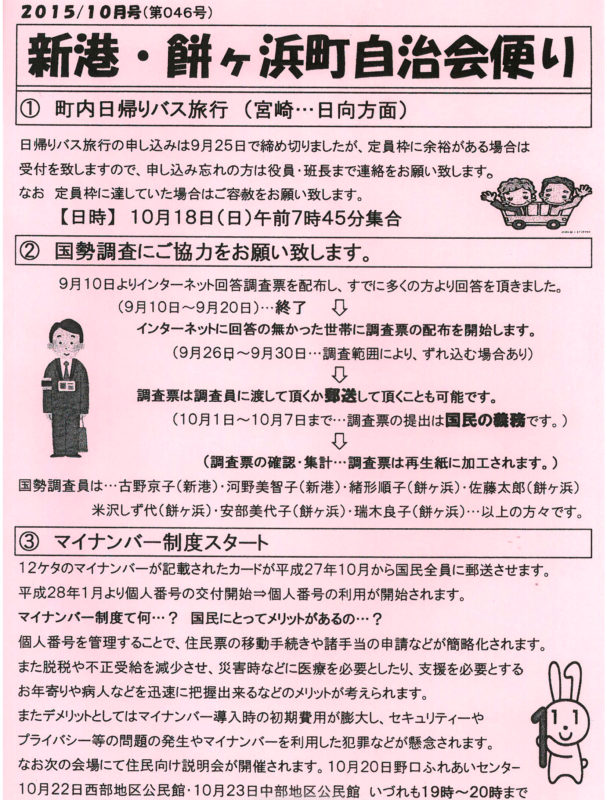 2015/10月号(第046号)
新港・餅ヶ浜町自治会便り
① 町内日帰りバス旅行 (宮崎…日向方面)
日帰りバス旅行の申し込みは9月25日で締め切りましたが、定員枠に余裕がある場合は
受付を致しますので、申し込み忘れの方は役員・班長まで連絡をお願い致します。
なお 定員枠に達していた場合はご容赦をお願い致します。
【日時】 10月18日(日)午前7時45分集合
② 国勢調査にご協力をお願い致します。
9月10日よりインターネット回答調査票を配布し、すでに多くの方より回答を頂きました。
(9月10日~9月20日)…終了 ⇩
インターネットに回答の無かった世帯に調査票の配布を開始します。
(9月26日~9月30日…調査範囲により、ずれ込む場合あり)
⇩
調査票は調査員に渡して頂くか郵送して頂くことも可能です。
(10月1日~10月7日まで…調査票の提出は国民の義務です。)
⇩
(調査票の確認・集計…調査票は再生紙に加工されます。)
国勢調査員は…古野京子(新港)・河野美智子(新港)・緒形順子(餅ヶ浜)・佐藤太郎(餅ヶ浜)
米沢しず代(餅ヶ浜)・安部美代子(餅ヶ浜)・瑞木良子(餅ヶ浜)…以上の方々です。
③ マイナンバー制度スタート
12ケタのマイナンバーが記載されたカードが平成27年10月から国民全員に郵送させます。
平成28年1月より個人番号の交付開始⇒個人番号の利用が開始されます。
マイナンバー制度て何…? 国民にとってメリットがあるの…?
個人番号を管理することで、住民票の移動手続きや諸手当の申請などが簡略化されます。
また脱税や不正受給を減少させ、災害時などに医療を必要としたり、支援を必要とする
お年寄りや病人などを迅速に把握出来るなどのメリットが考えられます。
またデメリットとしてはマイナンバー導入時の初期費用が膨大し、セキュリティーや
プライバシー等の問題の発生やマイナンバーを利用した犯罪などが懸念されます。
なお次の会場にて住民向け説明会が開催されます。10月20日野口ふれあいセンター
10月22日西部地区公民館・10月23日中部地区公民館 いづれも19時~20時まで